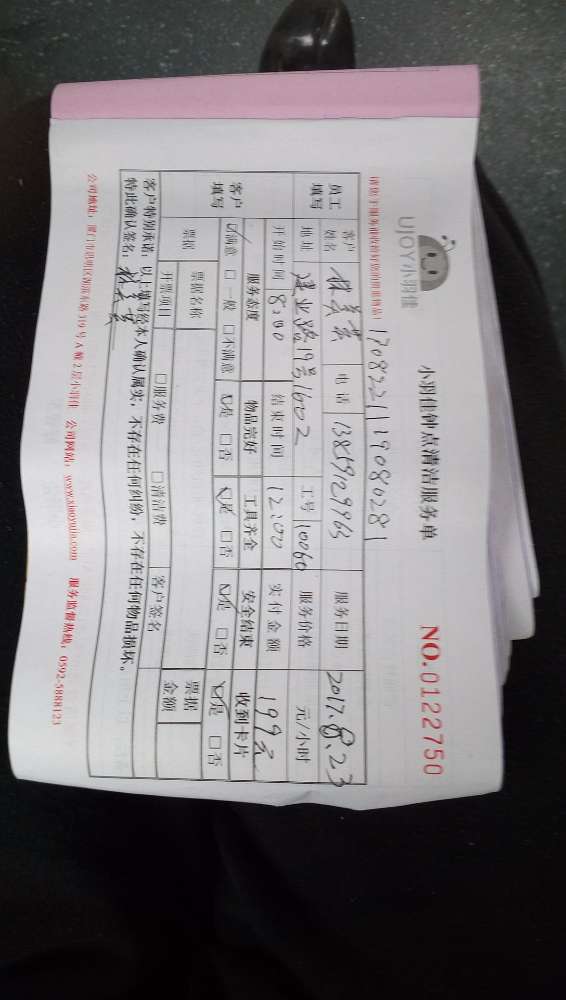 UJOY小羽佳
小羽佳钟点清洁服务单
NO.0122750
1708221119080281
员工填写
客户姓名 林美英 电话 13859129963 服务日期 2017.8.23
地址 建业路19号1602 工号 10060 服务价格 元/小时
开始时间 8:00 结束时间 12:00 实付金额 199元
客户填写
服务态度 物品完好 工具齐全 安全结束 收到卡片
☑满意 □一般 □不满意 ☑是 □否 ☑是 □否 ☑是 □否 ☑是 □否
票据 票据名称 票据金额
开票项目 □服务费 □清洁费 客户签名
客户特别承诺：以上填写经本人确认属实，不存在任何纠纷，不存在任何物品损坏。
特此确认签名：林美英
公司地址：厦门市思明区湖滨东路319号A幢2层小羽佳 公司网站：www.xiaoyujia.com 服务监督热线：0592-5888123